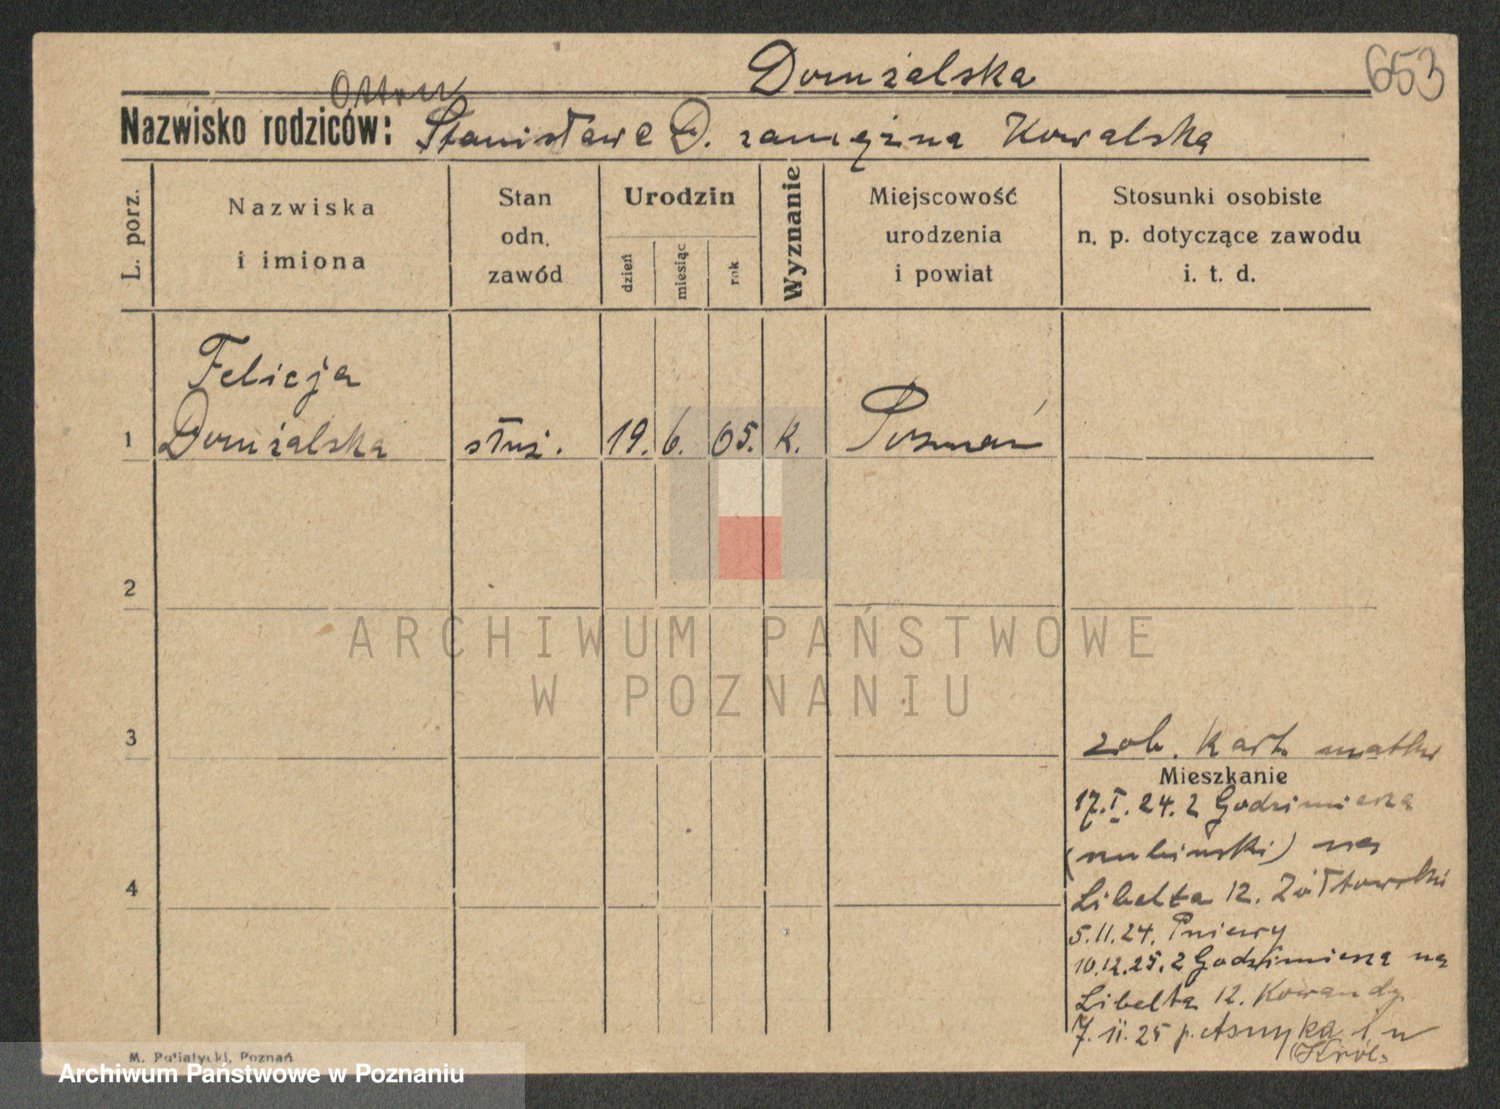 Domżalska
653
Nazwisko rodziców: Stanisława D. zamężna Kowalska
L. porz.
Nazwiska
i imiona
Stan
odn.
zawód
Urodzin
dzień
miesiąc
rok
Wyznanie
Miejscowość
urodzenia
i powiat
Stosunki osobiste
n. p. dotyczące zawodu
i. t. d.
Felicja
1 Domżalska służ. 19. 6. 05. k. Poznań
2
ARCHIWUM PAŃSTWOWE
W POZNANIU
3
zob. Kart. matki
Mieszkanie
17.I.24. z Godzimierza
na
4
Libelta 12. Żółtowski
5.11.24. Pniewy
10.12.25. z Godzimierza na
Libelta 12.
7.11.25 p. Asnyka 1
M. Putiatycki, Poznań
Archiwum Państwowe w Poznaniu